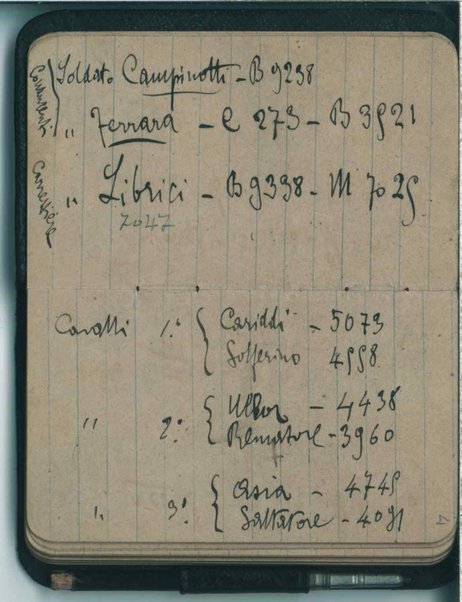 Conducenti
Soldato Campinotti - B 9238
" Ferrara - C 273 - B 3521
Carrettiere
" Librici - B 9338 - M 7025
7047
Cavalli 1.° Cariddi - 5073
Solferino 4558
" 2.° - 4438
Rematore - 3960
" 3° Asia - 4745
Saltatore - 4091
4